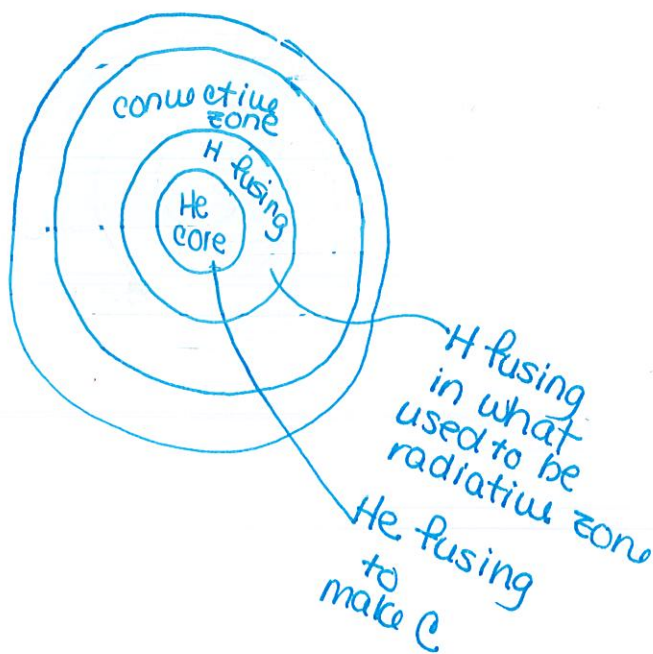 convective
zone
H fusing
He
core
H fusing
in what
used to be
radiative zone
He fusing
to
make C